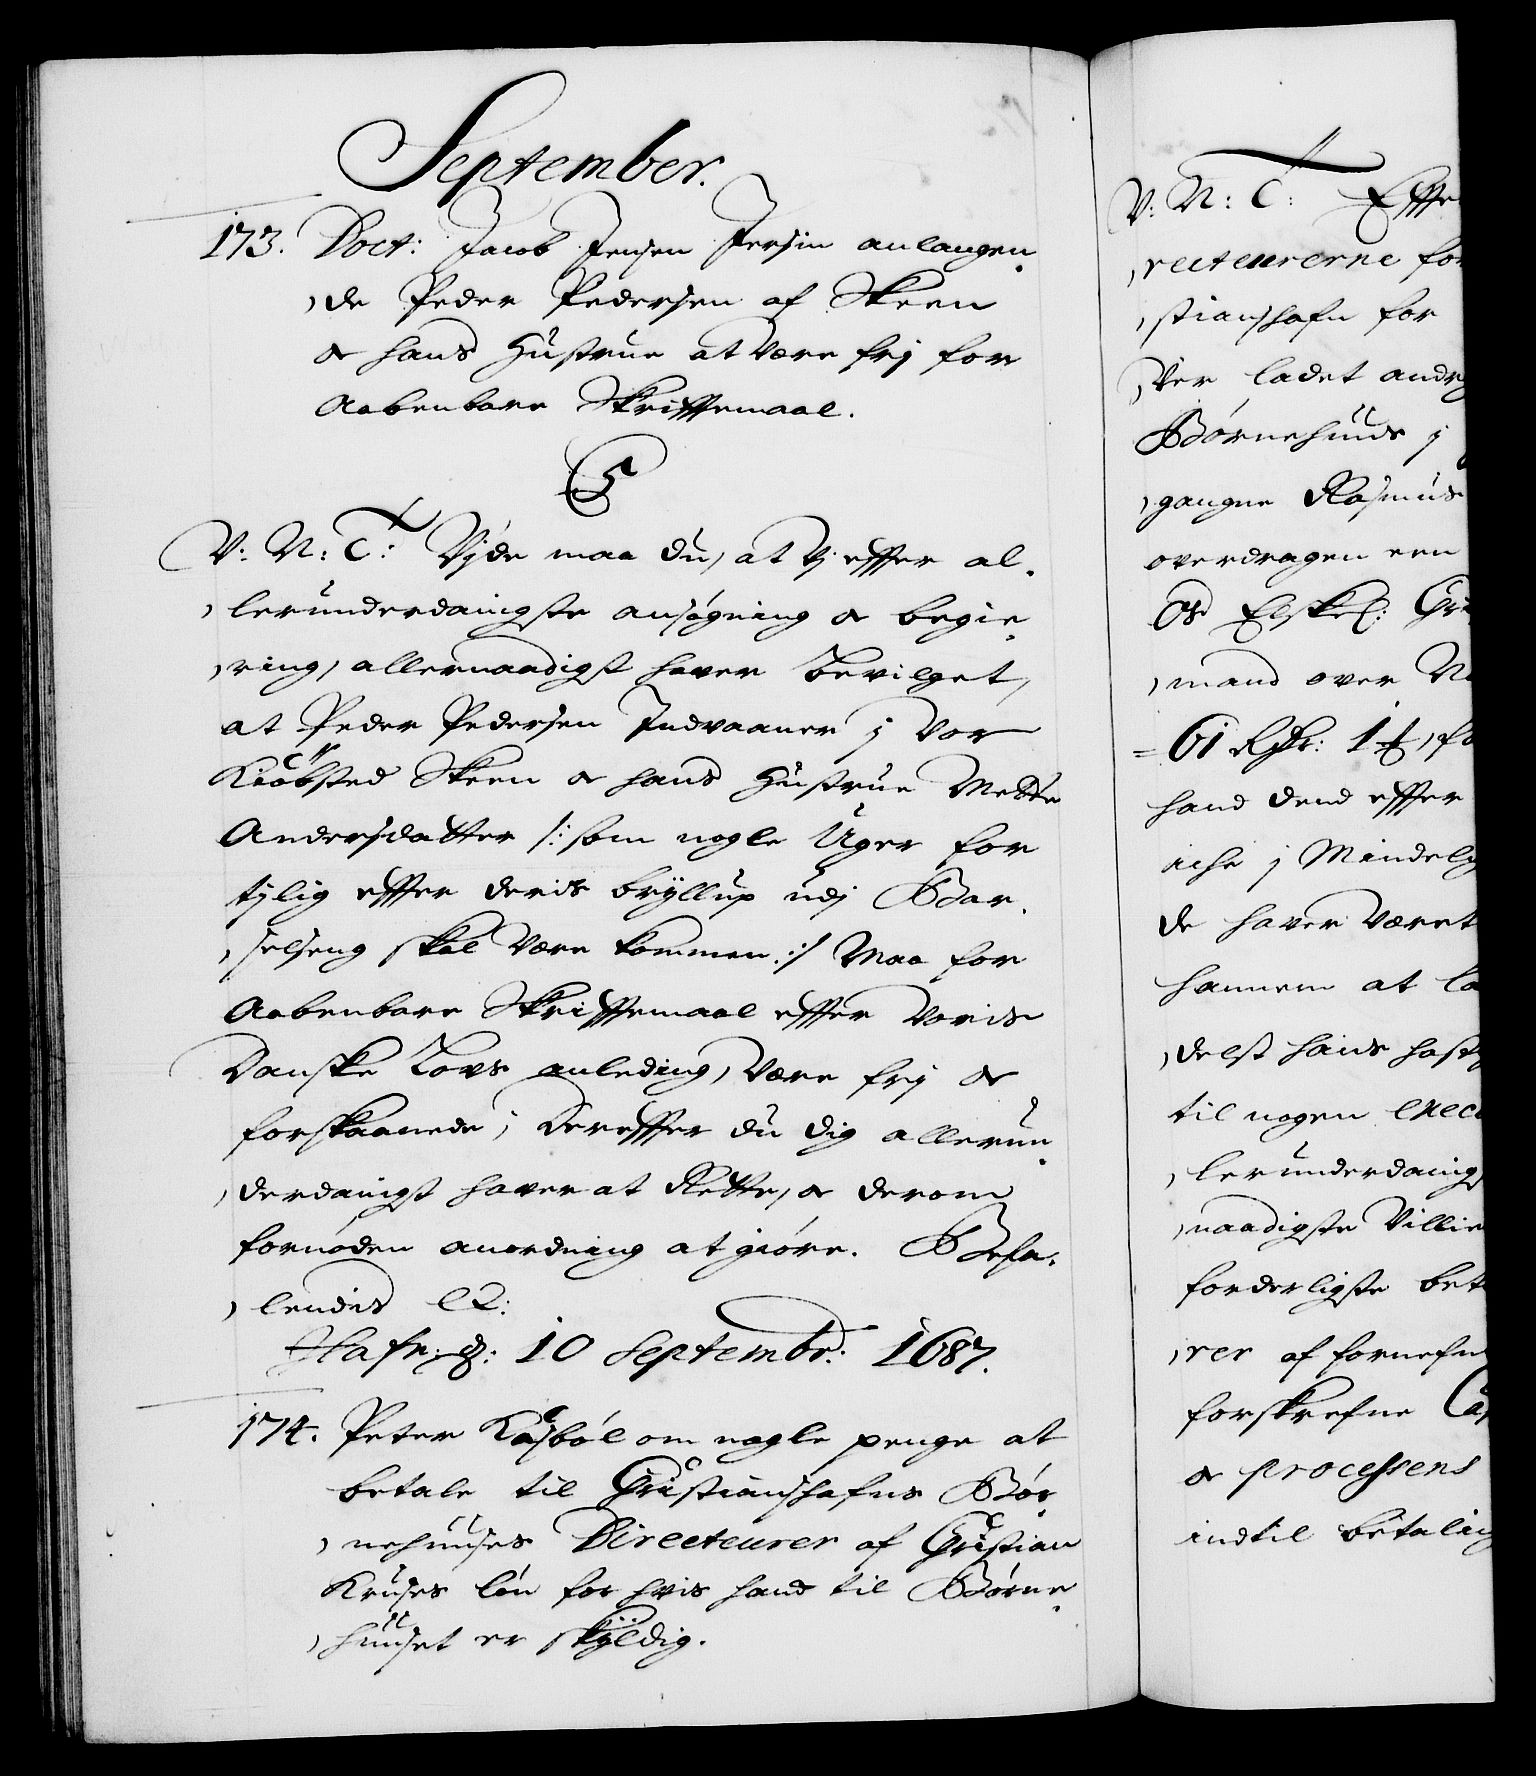 September.
173. Doct: Jacob Jensen Jersin anlangen,
,de Peder Pedersen af Skeen
oc hans Hustrue at være frj for
Aabenbare Skrifftemaal.
C5
V: N: C: Vjde maa du, at Vj effter al,
,lerunderdanigste ansøgning oc begie,
,ring, allernaadigst hafver bevilget,
at Peder Pedersen Indvaaner j vor
Kiøbsted Skeen oc hans Hustrue Mette
Andersdatter /: som nogle Uger for
tjlig effter deris brÿllup udj Bar,
,selseng skal være kommen :/ Maa for
Aabenbare Skrifftemaal effter Voris
Danske Lovs anleding, være frj oc
forskaanede; Dereffter du dig allerun,
,derdanigst hafver at Rette, oc derom
fornøden anordning at giøre. Befa,
,lendis etc:
Hafn: d: 10 Septembr: 1687.
174. Peter Kasbøl om nogle penge at
betale til Christianshafns Bør,
,nehuuses Directeurer af Christian
Kruses løn for hvis hand til Børne,
,huuset er skÿldig.
V: N: C: Effte
,recteurerne for
,stianshafn for
,Ver ladet andrg
Børnehuuds j
,gangne Rasmus
overdragen een
Os Elskel: Chri
,mand over N
= 61 Rdr: 1 , fo
hand dend effter
iche j Mindelg
de hafver været
hannem at la
,delst hans hast
til nogen exec
,lerunderdanigs
,naadigste Villie
forderligste bet
,rer af fornefn
forskrefne Ca
oc processens
indtil betaling